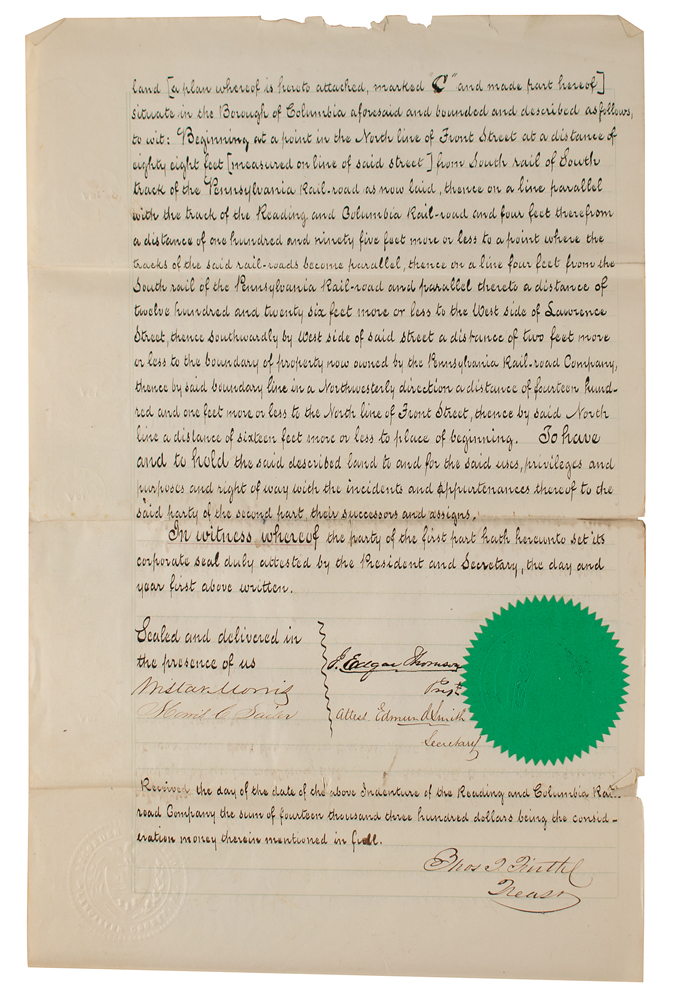 land [a plan whereof is hereto attached, marked "C" and made part hereof]
situate in the Borough of Columbia aforesaid and bounded and described as follows,
to wit: Beginning at a point in the North line of Front Street at a distance of
eighty eight feet [measured on line of said street] from South rail of South
track of the Pennsylvania Rail-road as now laid, thence on a line parallel
with the track of the Reading and Columbia Rail-road and four feet therefrom
a distance of one hundred and ninety five feet more or less to a point where the
tracks of the said rail-roads become parallel, thence on a line four feet from the
South rail of the Pennsylvania Rail-road and parallel thereto a distance of
twelve hundred and twenty six feet more or less to the West side of Lawrence
Street, thence Southwardly by West side of said street a distance of two feet more
or less to the boundary of property now owned by the Pennsylvania Rail-road Company,
thence by said boundary line in a Northwesterly direction a distance of fourteen hund-
red and one feet more or less to the North line of Front Street, thence by said North
line a distance of sixteen feet more or less to place of beginning. To have
and to hold the said described land to and for the said uses, privileges and
purposes and right of way with the incidents and appurtenances thereof to the
said party of the second part, their successors and assigns.
In witness whereof the party of the first part hath hereunto set its
corporate seal duly attested by the President and Secretary, the day and
year first above written.
Sealed and delivered in
the presence of us
Wistar Morris
J. Edgar Thomson
Prest
Attest Edmund Smith
Secretary
Received the day of the date of the above Indenture of the Reading and Columbia Rail-
road Company the sum of fourteen thousand three hundred dollars being the consid-
eration money therein mentioned in full.
Thos T Firth
Treasr